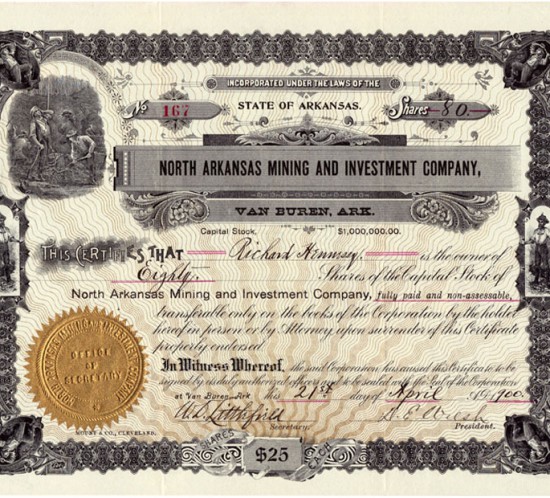 INCORPORATED UNDER THE LAWS OF THE
STATE OF ARKANSAS.
No 167
Shares 80
NORTH ARKANSAS MINING AND INVESTMENT COMPANY,
VAN BUREN, ARK.
Capital Stock, $1,000,000.00.
THIS CERTIFIES THAT Richard Hennesy is the owner of
Eighty Shares of the Capital Stock of
North Arkansas Mining and Investment Company, fully paid and non-assessable,
transferable only on the books of the Corporation by the holder
hereof in person or by Attorney upon surrender of this Certificate
properly endorsed.
In Witness Whereof, the said Corporation has caused this Certificate to be
signed by its duly authorized officers and to be sealed with the Seal of the Corporation
at Van Buren, Ark. this 21st day of April A.D. 1900.
Secretary.
President.
NORTH ARKANSAS MINING AND INVESTMENT COMPANY
OFFICE
OF
SECRETARY
SHARES
$25